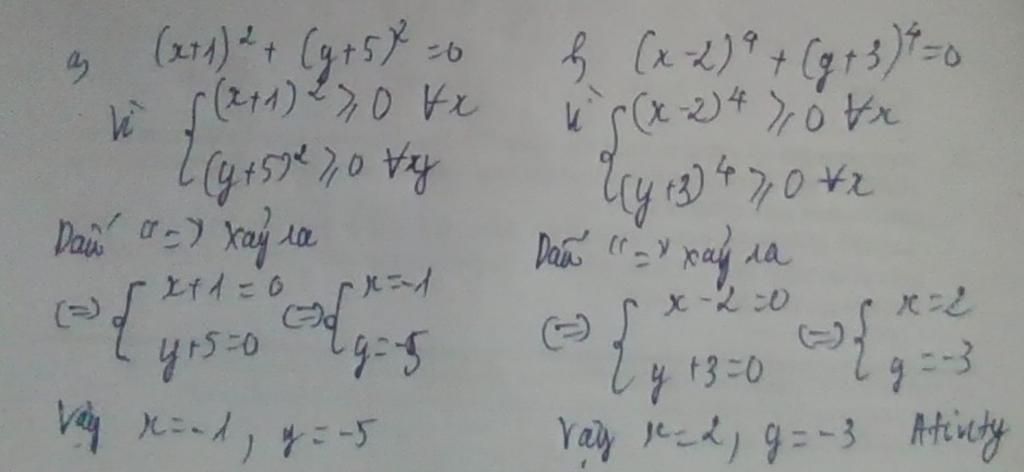 a, (x+1)² + (y+5)² = 0
Vì { (x+1)² ⩾ 0 ∀x
(y+5)² ⩾ 0 ∀xy
Dấu "=" xảy ra
(=) { x+1=0 (=) { x=-1
y+5=0 y=-5
Vậy x=-1, y=-5
b, (x-2)⁴ + (y+3)⁴ = 0
Vì { (x-2)⁴ ⩾ 0 ∀x
(y+3)⁴ ⩾ 0 ∀x
Dấu "=" xảy ra
(=) { x-2=0 (=) { x=2
y+3=0 y=-3
Vậy x=2, y=-3